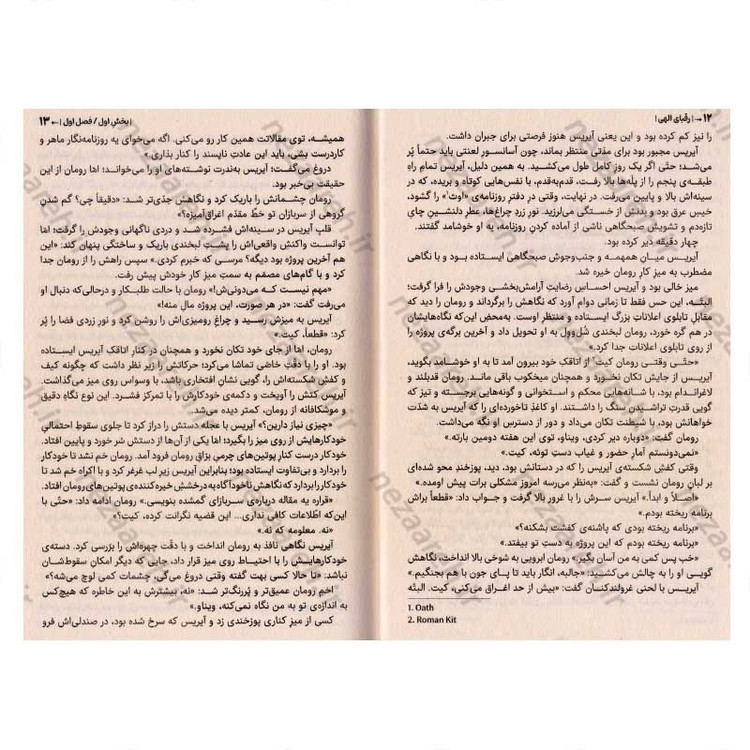 ۱۲ → | رقبای الهی |
را نیز کم کرده بود و این یعنی آیریس هنوز فرصتی برای جبران داشت.
آیریس مجبور بود برای مدّتی منتظر بماند، چون آسانسورِ لعنتی باید حتماً پُر
می‌شد؛ حتّی اگر یک روزِ کامل طول می‌کشید. به همین دلیل، آیریس تمامِ راهِ
طبقه‌ی پنجم را از پلّه‌ها بالا رفت، قدم‌به‌قدم، با نفس‌هایی کوتاه و بریده، که در
سینه‌اش بالا و پایین می‌رفت. در نهایت، وقتی در دفترِ روزنامه‌ی «اوث۱» را گشود،
خیسِ عرق بود و بدنش از خستگی می‌لرزید. نورِ زردِ چراغ‌ها، عطرِ دلنشینِ چایِ
تازه‌دم و تشویشِ صبحگاهی ناشی از آماده کردنِ روزنامه، به او خوشامد گفتند.
چهار دقیقه دیر کرده بود.
آیریس میانِ همهمه و جنب‌وجوشِ صبحگاهی ایستاده بود و با نگاهی
مضطرب به میزِ کارِ رومان خیره شد.
میز خالی بود و آیریس احساسِ رضایتِ آرامش‌بخشی وجودش را فرا گرفت؛
البتّه، این حس فقط تا زمانی دوام آورد که نگاهش را برگرداند و رومان را دید که
مقابلِ تابلوی اعلاناتِ بزرگ ایستاده و منتظرِ اوست. به‌محض این‌که نگاه‌هایشان
در هم گره خورد، رومان لبخندی شُل‌وول به او تحویل داد و آخرین برگه‌ی پروژه را
از روی تابلوی اعلانات جدا کرد.
«حتّی وقتی رومان کیت۲ از اتاقک خود بیرون آمد تا به او خوشامد بگوید،
آیریس از جایش تکان نخورد و همچنان میخکوب باقی ماند. رومان قدبلند و
لاغراندام بود، با شانه‌هایی محکم و استخوانی و گونه‌هایی برجسته و تیز که
گویی قدرتِ تراشیدنِ سنگ را داشتند. او کاغذِ تاخورده‌ای را که آیریس به شدّت
خواهانش بود، با شیطنت تکان می‌داد و دور از دسترسِ او نگه می‌داشت.
رومان گفت: «دوباره دیر کردی، ویناو، توی این هفته دومین بارته.»
«نمی‌دونستم آمارِ حضور و غیاب دستِ توئه، کیت.»
وقتی کفشِ شکسته‌ی آیریس را که در دستانش بود، دید، پوزخندِ محو شده‌ای
بر لبانِ رومان نشست و گفت: «به‌نظر می‌رسه امروز مشکلی برات پیش اومده.»
«اصلاً و ابداً.» آیریس سرش را با غرور بالا گرفت و جواب داد: «قطعاً براش
برنامه ریخته بودم.»
«برنامه ریخته بودی که پاشنه‌ی کفشت بشکنه؟»
«برنامه ریخته بودم که این پروژه به دستِ تو بیفتد.»
«خب پس کمی به من آسان بگیر.» رومان ابرویی به شوخی بالا انداخت، نگاهش
گویی او را به چالش می‌کشید: «جالبه، انگار باید تا پای جون با هم بجنگیم.»
آیریس با لحنی غرولندکنان گفت: «بیش از حد اغراق می‌کنی، کیت. البتّه
1. Oath
2. Roman Kit
| بخش اول / فصل اول | ← ۱۳
همیشه، توی مقالاتت همین کار رو می‌کنی. اگه می‌خوای یه روزنامه‌نگار ماهر و
کاردرست بشی، باید این عادتِ ناپسند را کنار بذاری.»
دروغ می‌گفت؛ آیریس به‌ندرت نوشته‌های او را می‌خواند؛ امّا رومان از این
حقیقت بی‌خبر بود.
رومان چشمانش را باریک کرد و نگاهش جدّی‌تر شد: «دقیقاً چی؟ گم شدنِ
گروهی از سربازان تو خطِّ مقدّم اغراق‌آمیزه؟»
قلبِ آیریس در سینه‌اش فشرده شد و دردی ناگهانی وجودش را گرفت؛ امّا
توانست واکنشِ واقعی‌اش را پشتِ لبخندی باریک و ساختگی پنهان کند: «این
هم آخرین پروژه بود دیگه؟ مرسی که خبرم کردی.» سپس راهش را از رومان جدا
کرد و با گام‌های مصمّم به سمتِ میزِ کارِ خودش پیش رفت.
«مهم نیست که می‌دونی‌ش!» رومان با حالت طلبکار و درحالی‌که دنبالِ او
می‌رفت گفت: «در هر صورت، این پروژه مالِ منه!»
آیریس به میزش رسید و چراغِ رومیزی‌اش را روشن کرد و نورِ زردی فضا را پُر
کرد: «قطعاً، کیت.»
رومان، امّا از جای خود تکان نخورد و همچنان در کنارِ اتاقکِ آیریس ایستاده
بود. او را با دقّتِ خاصّی تماشا می‌کرد؛ حرکاتش را زیر نظر داشت که چگونه کیف
و کفشِ شکسته‌اش را، گویی نشانِ افتخاری باشد، با وسواس روی میز می‌گذاشت.
آیریس کتش را آویخت و دکمه‌ی خودکارش را با تمرکز فشرد. این نوع نگاهِ دقیق
و موشکافانه از رومان، کمتر دیده می‌شد.
«چیزی نیاز دارین؟» آیریس با عجله دستش را دراز کرد تا جلوی سقوطِ احتمالیِ
خودکارهایش از روی میز را بگیرد؛ امّا یکی از آن‌ها از دستش سُر خورد و پایین افتاد.
خودکار درست کنارِ پوتین‌های چرمیِ برّاقِ رومان فرود آمد. رومان خم نشد تا خودکار
را بردارد و بی‌تفاوت ایستاده بود؛ بنابراین آیریس زیرِ لب غرغر کرد و با اکراه خم شد تا
خودکار را بردارد که نگاهش ناخودآگاه به درخششِ خیره‌کننده‌ی پوتین‌های رومان افتاد.
«قراره یه مقاله درباره‌ی سربازای گمشده بنویسی.» رومان ادامه داد: «حتّی با
این‌که اطّلاعات کافی نداری... این قضیه نگرانت کرده، کیت؟»
«نه. معلومه که نه.»
آیریس نگاهی نافذ به رومان انداخت و با دقّت چهره‌اش را بررسی کرد. دسته‌ی
خودکارهایش را با احتیاط روی میز قرار داد، جایی که دیگر امکانِ سقوطشان
نباشد: «تا حالا کسی بهت گفته وقتی دروغ می‌گی، چشمات کمی لوچ می‌شه؟»
اخمِ رومان عمیق‌تر و پُررنگ‌تر شد: «نه، بیشترش به این خاطره که هیچ‌کس
به اندازه‌ی تو به من نگاه نمی‌کنه، ویناو.»
کسی از میزِ کناری پوزخندی زد و آیریس که سرخ شده بود، در صندلی‌اش فرو
nezaarah.ir